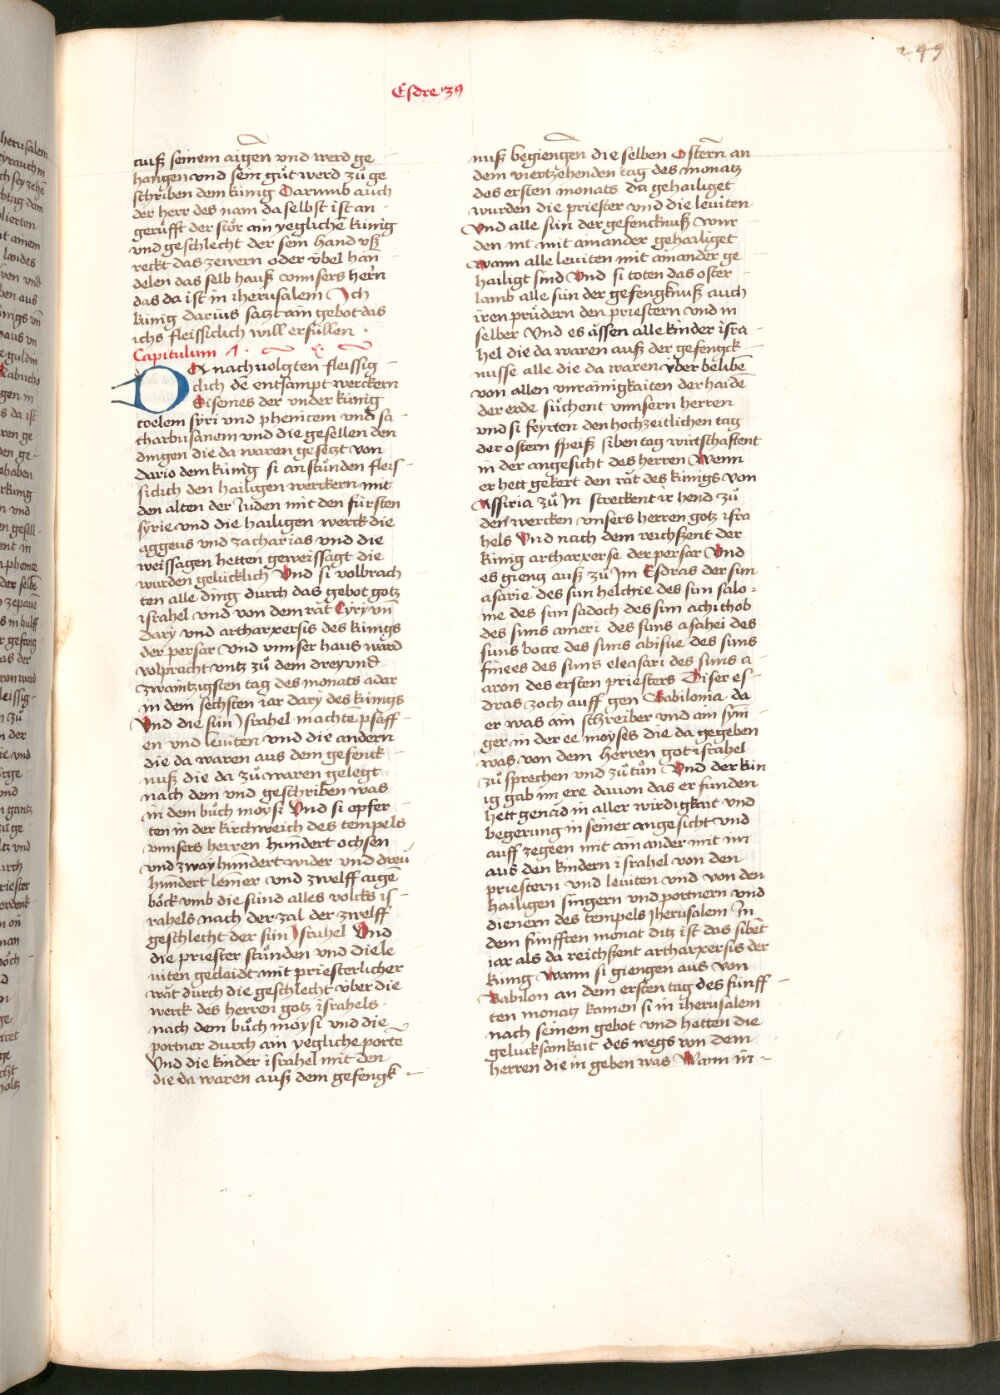 Esdre 39
299
auß seinem aigen vnd werd ge
hangen vnd sein gůt werd zů ge
schriben dem künig Darumb auch
der herr des nam da selbst ist an
gerüfft der stör ain yeglichē künig
vnd geschlecht der sein hand vß
reckt das zewern oder vbel han
delen das selb hauß vnnsers hern
das da ist in iherusalem Ich
künig darius satzt ain gebot das
ichs fleissiclich will erfüllen .
Capitulum
DEr nach uolgten fleissig
clich dē entsampt werckern
Sisenes der vnder künig
coelem syri vnd phenicem vnd sa
tharbusanem vnd die gesellen den
dingen die da waren gesetzt von
dario dem künig si anstůnden fleis
siclich den hailigen werckern mit
den alten der Juden mit den fürsten
syrie vnd die hailigen werck die
aggeus vnd zacharias vnd die
weissagen hetten geweissagt die
wurden gelücklich Vnd si volbrach
ten alle ding durch das gebot gotz
israhel vnd von dem rät Cyry vn̄
dary vnd artharxersis des künigs
der persar vnd vnnser haus ward
volpracht vntz zů dem dreyund
zwaintzigsten tag des monats adar
in dem sechsten iar dary des künigs
Vnd die sün Israhel machtē pfaff
en vnd leuiten vnd die andern
die da waren aus dem gefenck
nuß die da zů waren gelegt
nach dem vnd geschriben was
in dem bůch moysi Vnd si opfer
ten in der kirchweich des tempels
vnnsers herren hundert ochsen
vnd zway hundert wider vnd dreü
hundert lemer vnd zwelff aigē
böck vmb die sünd alles volcks is
rahels nach der zal der zwelff
geschlecht der sün Israhel Vnd
die priester stůnden vnd die le
uiten geclaidt mit priesterlicher
wät durch die geschlecht vber die
werck des herren gotz israhels
nach dem bůch moysi vnd die
portner durch ain yegliche porte
Vnd die kinder israhel mit den
die da waren auß dem gefengk
nuß begiengen die selben Ostern an
dem viertzehenden tag des monatz
des ersten monats da gehailiget
wurden die priester vnd die leuiten
Vnd alle sün der gefencknuß wur
den nit mit ainander gehailiget
Wann alle leuiten mit ainander ge
hailigt sind Vnd si toten das oster
lamb alle sün der gefengknuß auch
iren prüdern den priestern vnd in
selber Vnd es ässen alle kinder isra
hel die da waren auß der gefengck
nusse alle die da waren vber belibē
von allen vnrainigkaiten der haidē
der erde sůchent vnnsern herren
vnd si feyrten den hochzeitlichen tag
der ostern speiß siben tag wirtschaftent
in der angesicht des herren Wenn
er hett gekert den rät des künigs von
Assiria zů In streckent ir hend zů
den wercken vnsers herren gotz isra
hels Vnd nach dem reichßent der
künig artharxerse der persar Vnd
es gieng auß zů Im Esdras der sun
asarie des sun helchie des sun salo
me des sun sadoch des sun achithob
des suns ameri des suns asahei des
suns bocce des suns abisue des suns
finees des suns eleasari des suns a
aron des ersten priesters Diser es
dras zoch auff gen Babilonia da
er was ain schreiber vnd ain syn̄
ger in der ee moyses die da gegeben
was von dem herren got israhel
zů sprechen vnd zů tůn Vnd der kün
ig gab im ere dauon das er funden
hett genäd in aller wirdigkait vnd
begerung in seiner angesicht vnd
auff zegeen mit ain ander mit im
aus den kindern israhel von den
priestern vnd leuiten vnd von den
hailigen singern vnd portnern vnd
dienern des tempels Iherusalem In
dem fünfften monat ditz ist das sibēt
iar als da reichßent artharxersis der
künig Wann si giengen aus von
Babilon an dem ersten tag des fünff
ten monatz kamen si in iherusalem
nach seinem gebot vnd hetten die
gelucksamkait des wegs von dem
herren die in geben was Wann in